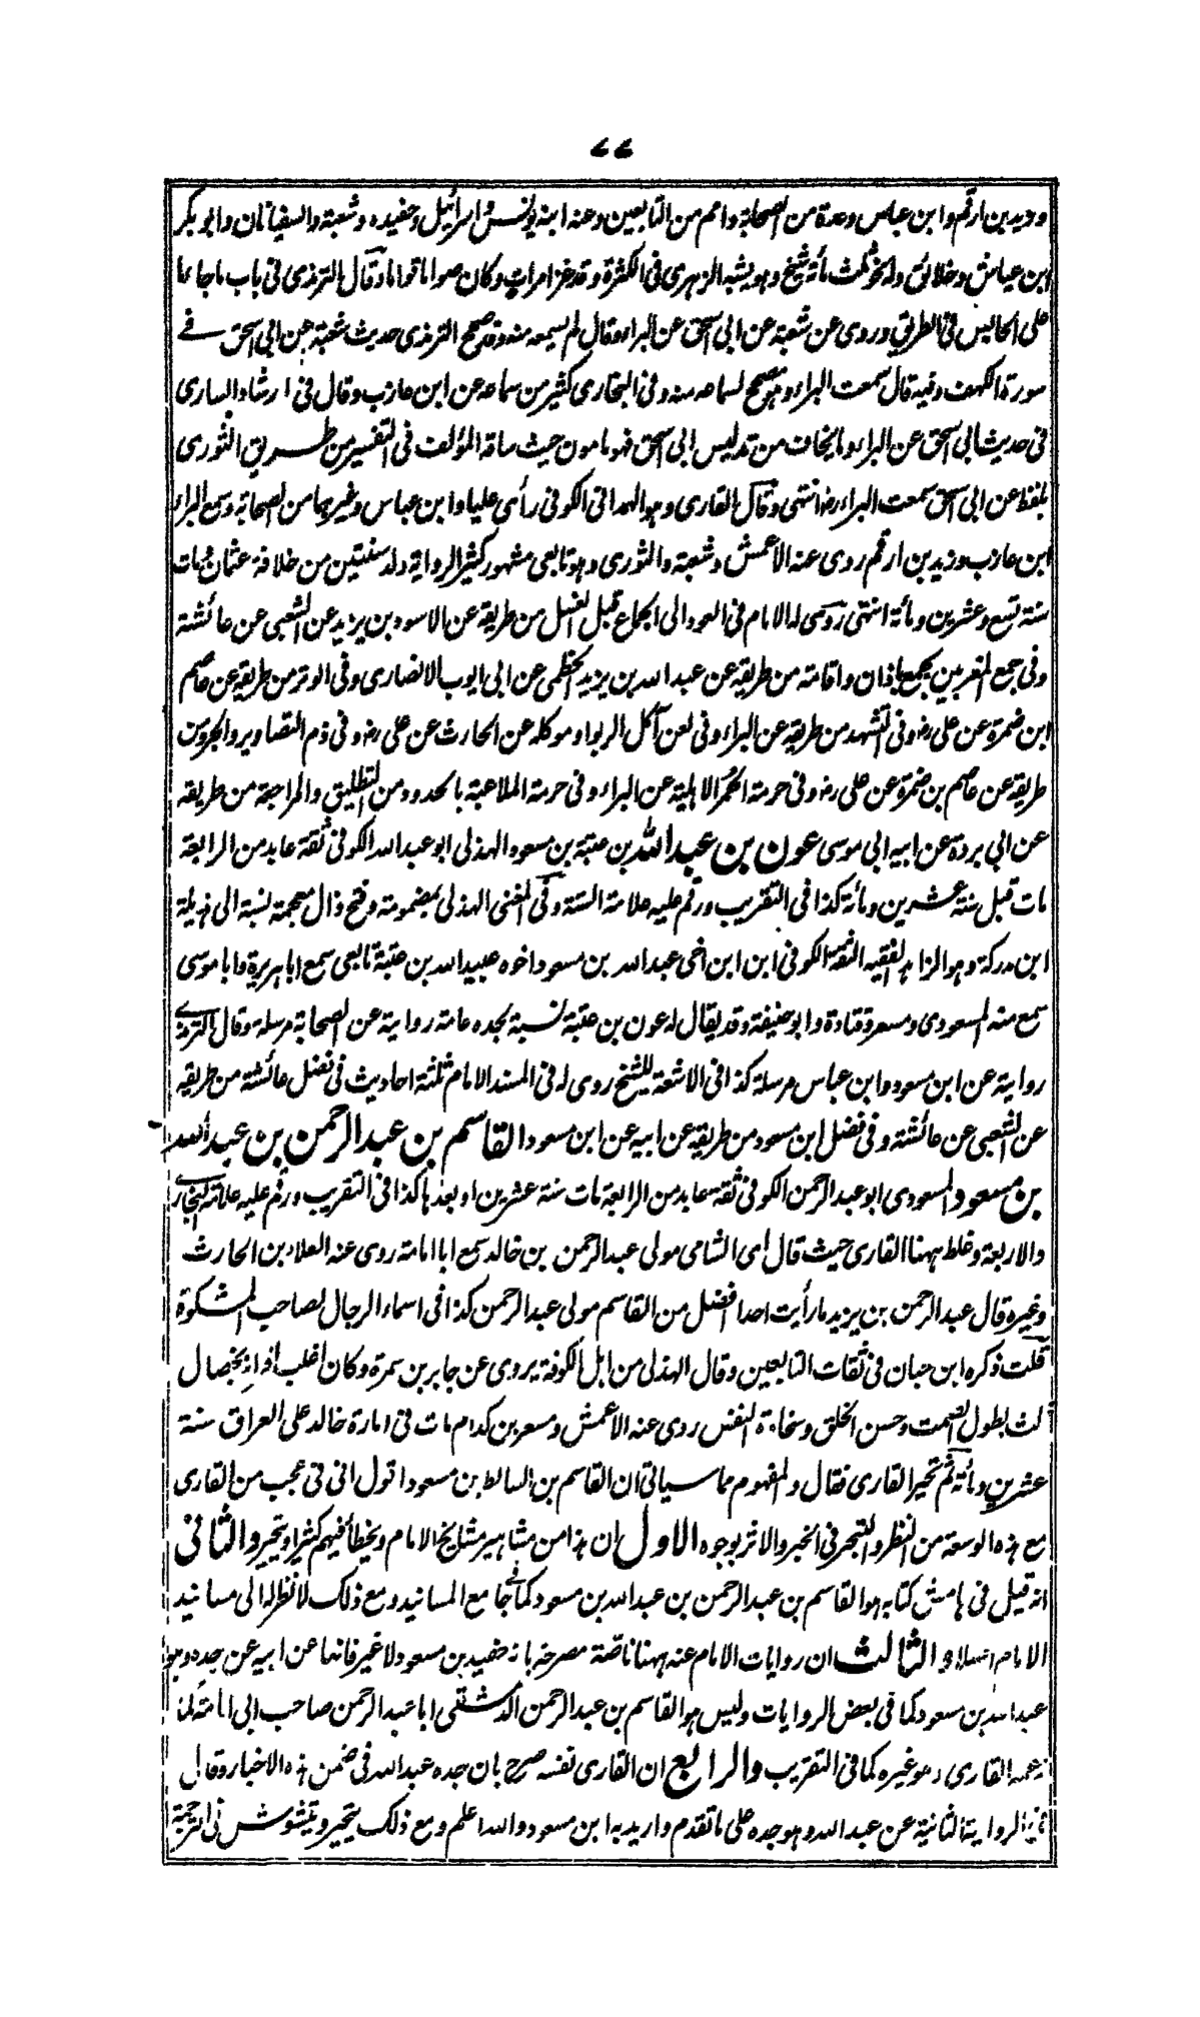 ٧٧
وزيد بن ارقم وابن عباس وعدة من الصحابة وامم من التابعين وعنه ابنه يونس واسرائيل وحفيده وشعبة والسفيانان وابو بكر
ابن عياش وخلائق وله نحو ثلث مأة شيخ وهو يشبه الزهرى فى الكثرة وقد غزا مرات وكان صواما قواما وقال الترمذى فى باب ما جاء
على الجالس فى الطريق وروى عن شعبة عن ابى اسحق عن البراء وقال لم يسمعه منه وقد صحح الترمذى حديث شعبة عن ابى اسحق فے
سورة الكهف وفيه قال سمعت البراء وهو مصحح لسماعه منه وفى البخارى كثير من سماعه عن ابن عازب وقال فى ارشاد السارى
فى حديث ابى اسحق عن البراء وما يخاف من تدليس ابى اسحق فهو مامون حيث ساقه المؤلف فى التفسير من طريق الثورى
بلفظ عن ابى اسحق سمعت البراء رض انتهى وقال القارى وهو الهمدانى الكوفى رأى عليا وابن عباس وغيرهما من الصحابة وسمع البراء
ابن عازب وزيد بن ارقم روى عنه الاعمش وشعبة والثورى وهو تابعى مشهور كثير الرواية ولد لسنتين من خلافة عثمان ومات
سنة تسع وعشرين ومأة انتهى روى له الامام فى العود الى الجماع قبل الغسل من طريقه عن الاسود بن يزيد عن الشعبى عن عائشة
وفى جمع المغربين بجمع باذان واقامة من طريقه عن عبد الله بن يزيد الخطمى عن ابى ايوب الانصارى وفى الوتر من طريقه عن عاصم
ابن ضمرة عن على رض وفى التشهد من طريقه عن البراء وفى لعن آكل الربوا وموكله عن الحارث عن على رض وفى ذم التصاوير والجرو من
طريقه عن عاصم بن ضمرة عن على رض وفى حرمة الحمر الاهلية عن البراء وفى حرمة الملاعبة بالحدود من التطليق والمراجعة من طريقه
عن ابى بردة عن ابيه ابى موسى عون بن عبد الله بن عتبة بن مسعود الهذلى ابو عبد الله الكوفى ثقة عابد من الرابعة
مات قبل سنة عشرين ومأة كذا فى التقريب ورقم عليه علامة الستة وفى المغنى الهذلى بمضمومة وفتح ذال معجمة نسبة الى هذيلة
ابن مدركة وهو الزاهد الفقيه الثقة الكوفى ابن ابن اخى عبد الله بن مسعود اخوه عبيد الله بن عتبة تابعى سمع ابا هريرة وابا موسى
سمع منه المسعودى ومسعر وقتادة وابو حنيفة وقد يقال له عون بن عتبة نسبة لجده عامة رواية عن الصحابة مرسلة وقال الترمذے
رواية عن ابن مسعود وابن عباس مرسلة كذا فى الاشعة للشيخ روى له فى المسند الامام ثلثة احاديث فى فضل عائشة من طريقه
عن الشعبى عن عائشة وفى فضل ابن مسعود من طريقه عن ابيه عن ابن مسعود القاسم بن عبد الرحمن بن عبد الله
بن مسعود المسعودى ابو عبد الرحمن الكوفى ثقة عابد من الرابعة مات سنة عشرين او بعدها كذا فى التقريب ورقم عليه علامة البخارے
والاربعة وغلط ههنا القارى حيث قال اى الشامى مولى عبد الرحمن بن خالد سمع ابا امامة روى عنه العلاء بن الحارث
وغيره قال عبد الرحمن بن يزيد ما رأيت احدا افضل من القاسم مولى عبد الرحمن كذا فى اسماء الرجال لصاحب المشكوة
قلت ذكره ابن حبان فى ثقات التابعين وقال الهذلى من اهل الكوفة يروى عن جابر بن سمرة وكان اغلب افراده بخصال
ثلث بطول الصمت وحسن الخلق وسخاوة النفس روى عنه الاعمش ومسعر بن كدام مات فى امارة خالد على العراق سنة
عشرين ومأة ثم تحير القارى فقال والمفهوم مما سياتى ان القاسم بن السالط بن مسعود اقول انى فى عجب من القارى
مع هذه الوسعة من النظر والتبحر فى الخبر والاثر بوجوه الاول ان هذا من مشاهير مشايخ الامام ويخطأ فيهم كثيرا ويتحير والثانى
انه قيل فى هامش كتابه هو القاسم بن عبد الرحمن بن عبد الله بن مسعود كما فى جامع المسانيد ومع ذلك لا نظر له الى مسانيد
الامام اصلا والثالث ان روايات الامام عنه ههنا ناصة مصرحة بانه حفيد بن مسعود لا غير فانها عن ابيه عن جده وهو
عبد الله بن مسعود كما فى بعض الروايات وليس هو القاسم بن عبد الرحمن الدمشقى ابا عبد الرحمن صاحب ابى امامة كما
زعمه القارى وهو غيره كما فى التقريب والرابع ان القارى نفسه صرح بان جده عبد الله فى ضمن هذه الاخبار وقال
فى الرواية الثانية عن عبد الله وهو جده على ما تقدم واريد به ابن مسعود والله اعلم ومع ذلك يتحير ويتشوش فى الترجمة